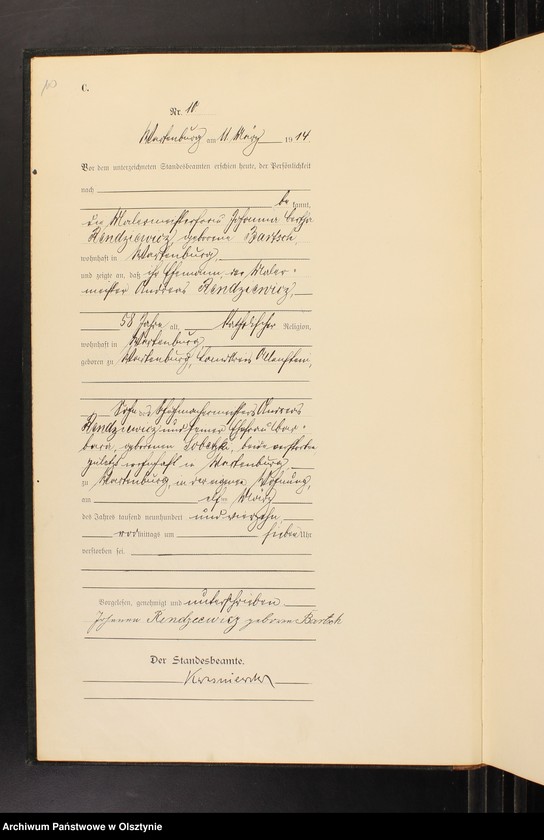 10
C.
Nr. 10
Wartenburg am 11. März 1914.
Vor dem unterzeichneten Standesbeamten erschien heute, der Persönlichkeit
nach
be kannt,
die Malermeisterfrau Johanna Bertha
Rendziewicz, geborene Bartsch,
wohnhaft in Wartenburg,
und zeigte an, daß ihr Ehemann, der Maler-
meister Andreas Rendziewicz,
58 Jahre alt, katholischer Religion,
wohnhaft in Wartenburg,
geboren zu Wartenburg, Landkreis Allenstein,
Sohn des Schuhmachermeisters Andreas
Rendziewicz und seiner Ehefrau Bar-
bara, geborenen beide verstorben
zuletzt wohnhaft in Wartenburg,
zu Wartenburg, in der eigenen Wohnung,
am elften März
des Jahres tausend neunhundert und vierzehn,
vormittags um sieben Uhr
verstorben sei.
Vorgelesen, genehmigt und unterschrieben
Johanna Rendziewicz geborene Bartsch
Der Standesbeamte.
Archiwum Państwowe w Olsztynie